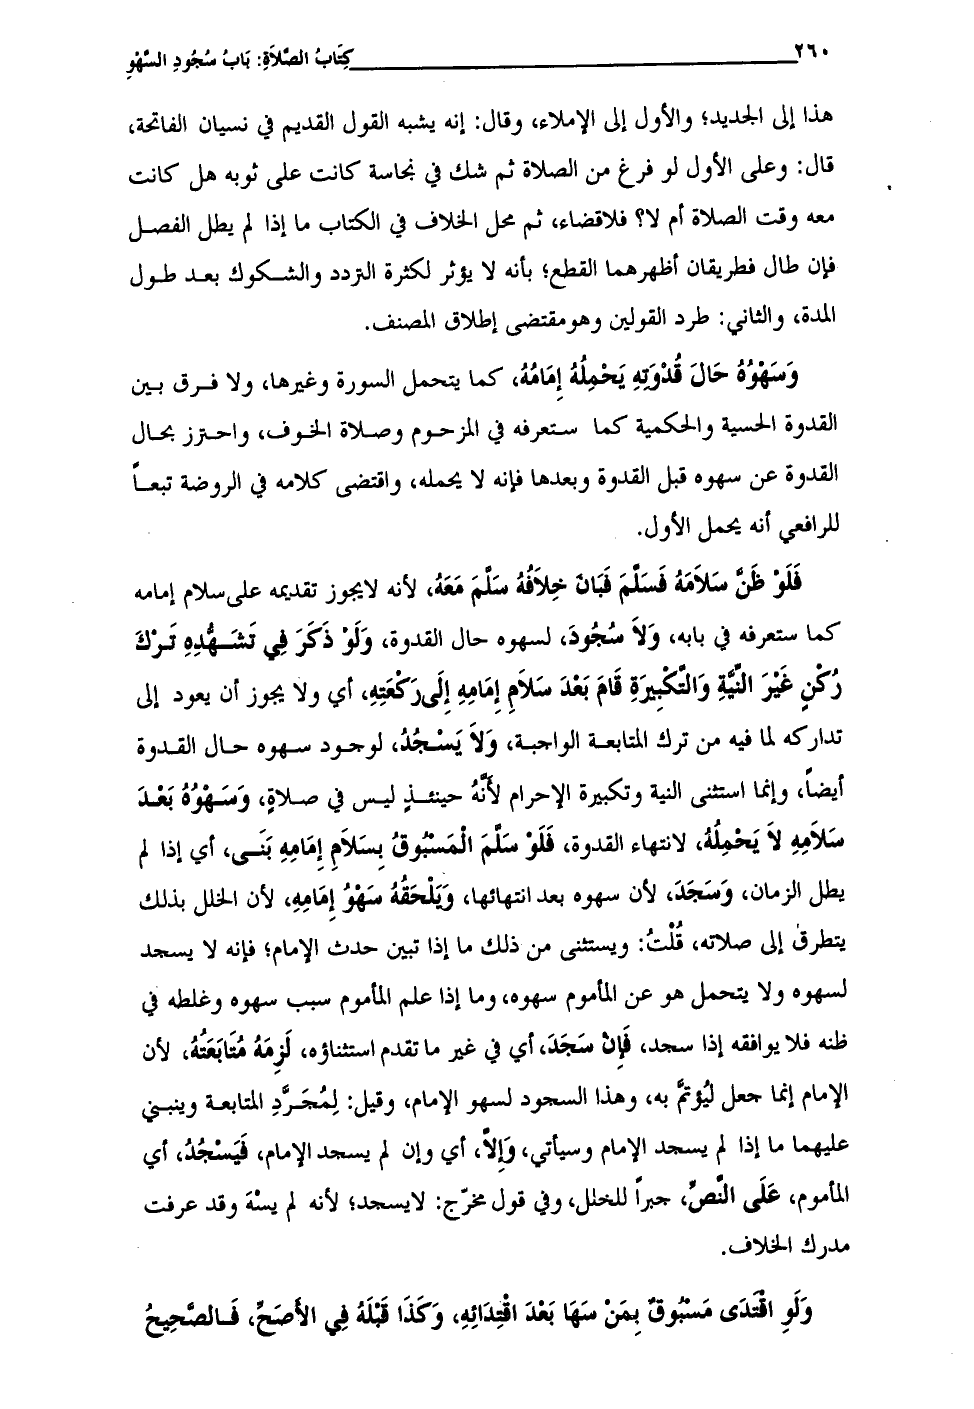 ٢٦٠ كِتَابُ الصَّلاَةِ: بَابُ سُجُودِ السَّهْوِ
هذا إلى الجديد؛ والأول إلى الإملاء، وقال: إنه يشبه القول القديم في نسيان الفاتحة،
قال: وعلى الأول لو فرغ من الصلاة ثم شك في نجاسة كانت على ثوبه هل كانت
معه وقت الصلاة أم لا؟ فلاقضاء، ثم محل الخلاف في الكتاب ما إذا لم يطل الفصل
فإن طال فطريقان أظهرهما القطع؛ بأنه لا يؤثر لكثرة التردد والشكوك بعد طول
المدة، والثاني: طرد القولين وهومقتضى إطلاق المصنف.
وَسَهْوُهُ حَالَ قُدْوَتِهِ يَحْمِلُهُ إِمَامُهُ، كما يتحمل السورة وغيرها، ولا فرق بين
القدوة الحسية والحكمية كما ستعرفه في المزحوم وصلاة الخوف، واحترز بحال
القدوة عن سهوه قبل القدوة وبعدها فإنه لا يحمله، واقتضى كلامه في الروضة تبعاً
للرافعي أنه يحمل الأول.
فَلَوْ ظَنَّ سَلاَمَهُ فَسَلَّمَ فَبَانَ خِلاَفُهُ سَلَّمَ مَعَهُ، لأنه لايجوز تقديمه على سلام إمامه
كما ستعرفه في بابه، وَلاَ سُجُودَ، لسهوه حال القدوة، وَلَوْ ذَكَرَ فِي تَشَهُّدِهِ تَرْكَ
رُكْنٍ غَيْرَ النِّيَّةِ وَالتَّكْبِيرَةِ قَامَ بَعْدَ سَلاَمِ إِمَامِهِ إِلَى رَكْعَتِهِ، أي ولا يجوز أن يعود إلى
تداركه لما فيه من ترك المتابعة الواجبة، وَلاَ يَسْجُدُ، لوجود سهوه حال القدوة
أيضاً، وإنما استثنى النية وتكبيرة الإحرام لأَنَّهُ حينئذٍ ليس في صلاةٍ، وَسَهْوُهُ بَعْدَ
سَلاَمِهِ لاَ يَحْمِلُهُ، لانتهاء القدوة، فَلَوْ سَلَّمَ الْمَسْبُوقُ بِسَلاَمِ إِمَامِهِ بَنَى، أي إذا لم
يطل الزمان، وَسَجَدَ، لأن سهوه بعد انتهائها، وَيَلْحَقُهُ سَهْوُ إِمَامِهِ، لأن الخلل بذلك
يتطرق إلى صلاته، قُلْتُ: ويستثنى من ذلك ما إذا تبين حدث الإمام؛ فإنه لا يسجد
لسهوه ولا يتحمل هو عن المأموم سهوه، وما إذا علم المأموم سبب سهوه وغلطه في
ظنه فلا يوافقه إذا سجد، فَإِنْ سَجَدَ، أي في غير ما تقدم استثناؤه، لَزِمَهُ مُتَابَعَتُهُ، لأن
الإمام إنما جعل ليُؤتمَّ به، وهذا السجود لسهو الإمام، وقيل: لِمُجَرَّدِ المتابعة وينبني
عليهما ما إذا لم يسجد الإمام وسيأتي، وَإِلاَّ، أي وإن لم يسجد الإمام، فَيَسْجُدُ، أي
المأموم، عَلَى النَّصِّ، جبراً للخلل، وفي قول مخرّج: لايسجد؛ لأنه لم يسْهَ وقد عرفت
مدرك الخلاف.
وَلَوِ اقْتَدَى مَسْبُوقٌ بِمَنْ سَهَا بَعْدَ اقْتِدَائِهِ، وَكَذَا قَبْلَهُ فِي الأَصَحِّ، فَالصَّحِيحُ